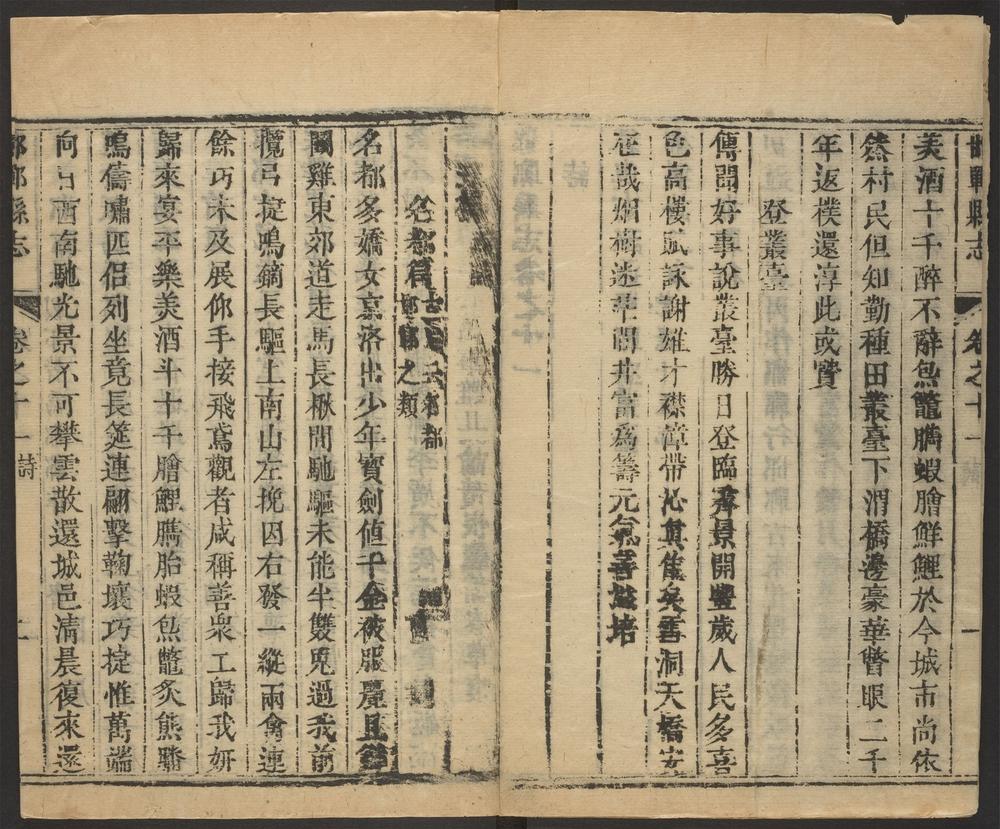 邯鄲縣志 卷之十一 詩 一
美酒十千醉不辭炰鼈臇蝦膾鮮鯉於今城市尚依
然村民但知勤種田叢臺下渭橋邊豪華瞥眼二千
年返樸還淳此或賢
登叢臺
傳聞好事說叢臺勝日登臨霽景開豐歲人民多喜
色高樓賦詠謝雄才襟漳帶沁真佳矣雪洞天橋安
在哉烟樹迷茫閭井富為籌元氣善栽培
名都篇
邯鄲之類
名都多嬌女京洛出少年寶劍值千金被服麗且鮮
鬭雞東郊道走馬長楸間馳驅未能半雙兎過我前
攬弓捷鳴鏑長驅上南山左挽因右發一縱兩禽連
餘巧未及展仰手接飛鳶觀者咸稱善衆工歸我妍
歸來宴平樂美酒斗十千膾鯉臇胎蝦炰鼈炙熊蹯
鳴儔嘯匹侣列坐竟長筵連翩擊鞠壤巧捷惟萬端
向日西南馳光景不可攀雲散還城邑清晨復來還
邯鄲縣志 卷之十一 詩 二